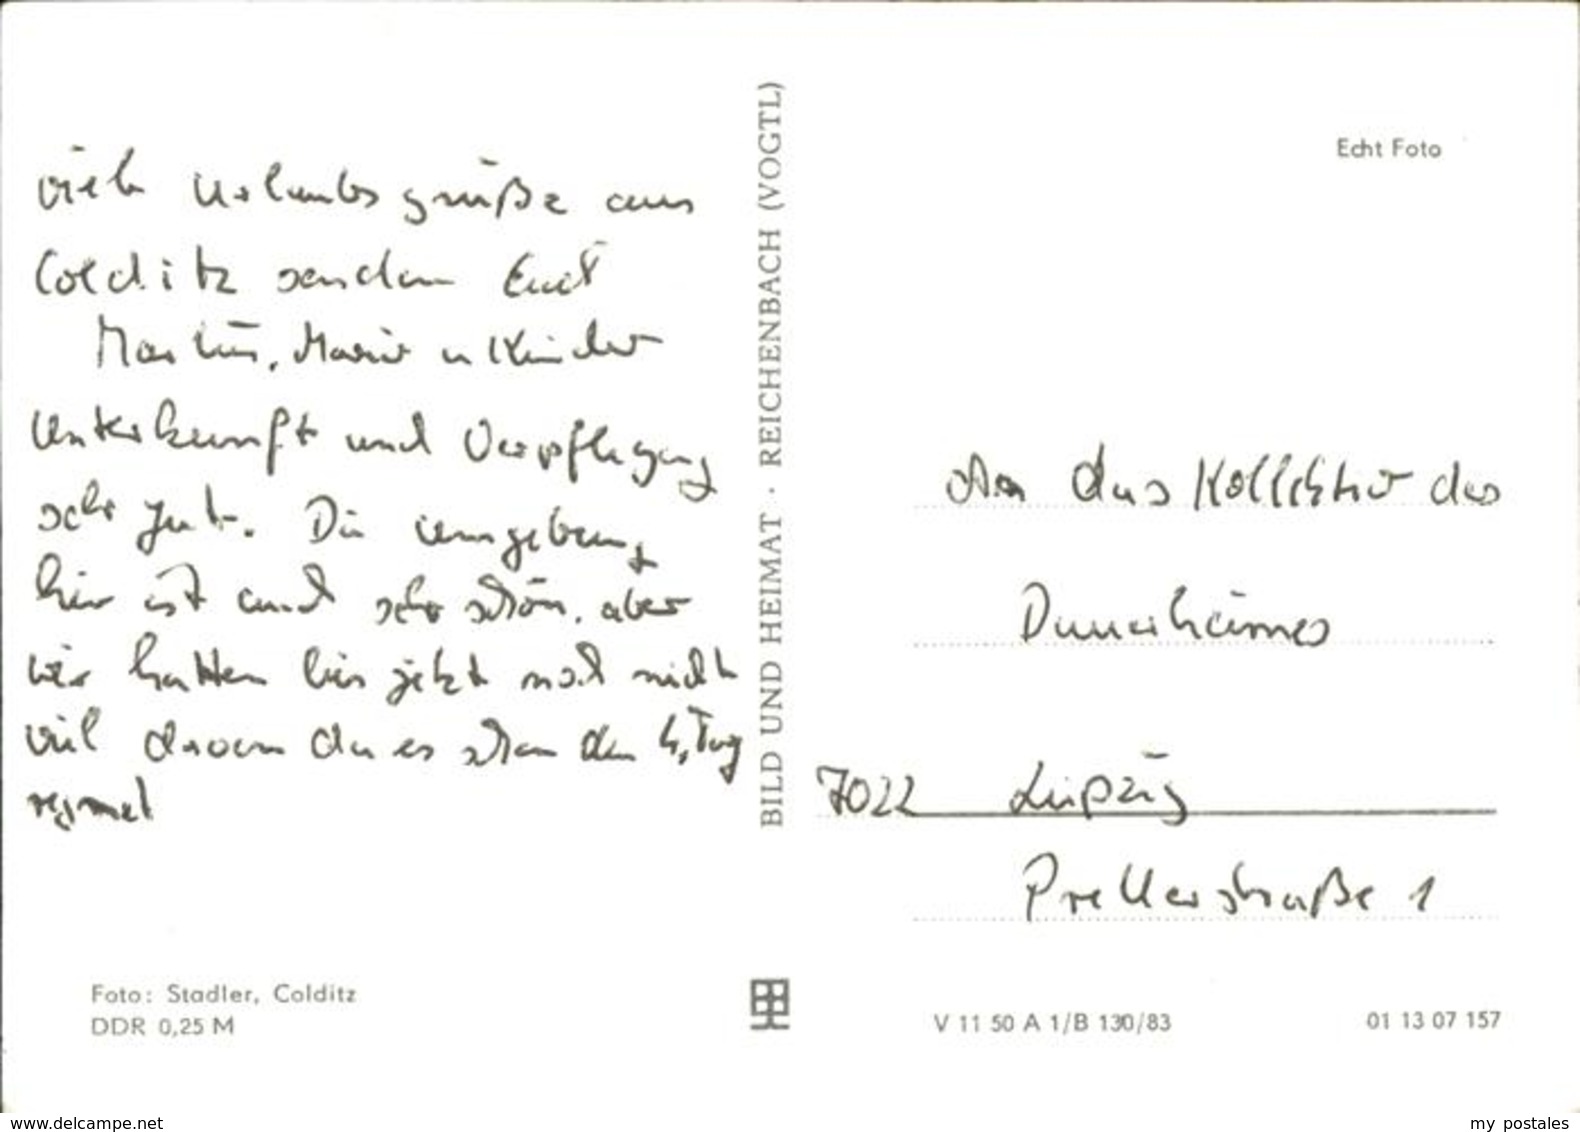 viele Urlaubsgrüße aus
Colditz senden Euch
Martin, Mario u Kinder
Unterkunft und Verpflegung
sehr gut. Die Umgebung
hier ist auch sehr schön, aber
wir hatten bis jetzt noch nicht
viel davon da es schon den 4. Tag
regnet
Foto: Stadler, Colditz
DDR 0,25 M
BILD UND HEIMAT · REICHENBACH (VOGTL)
Echt Foto
An das Kollektiv des
7022 Leipzig
Prellerstraße 1
V 11 50 A 1/B 130/83
01 13 07 157
www.delcampe.net
my postales